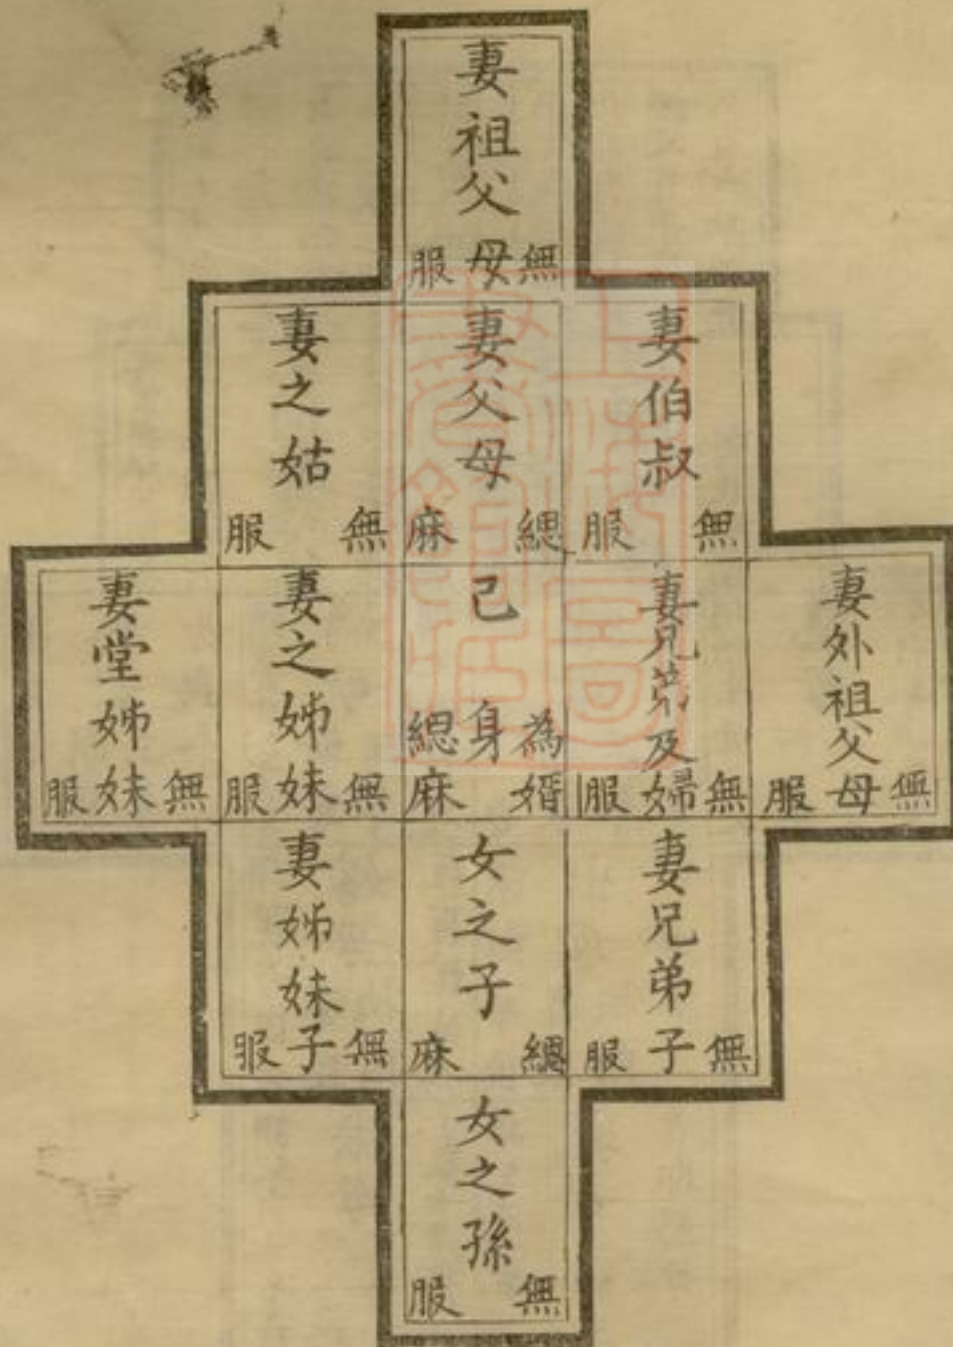 妻祖父母
無服
妻伯叔
無服
妻父母
緦麻
妻之姑
無服
妻外祖父母
無服
妻兄弟及婦
無服
己身
為婿緦麻
妻之姊妹
無服
妻堂姊妹
無服
妻兄弟子
無服
女之子
緦麻
妻姊妹子
無服
女之孫
無服
上海圖書館藏